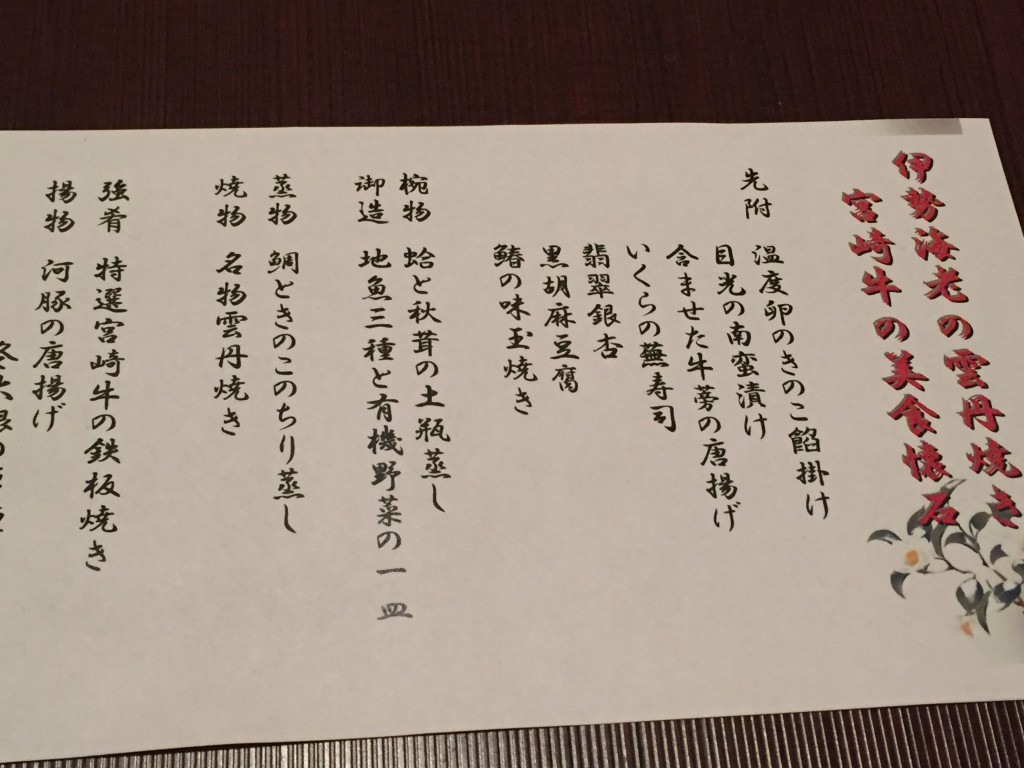 伊勢海老の雲丹焼き
宮崎牛の美食懐石
先附
温度卵のきのこ餡掛け
目光の南蛮漬け
含ませた牛蒡の唐揚げ
いくらの蕪寿司
翡翠銀杏
黒胡麻豆腐
鰆の味玉焼き
椀物 蛤と秋茸の土瓶蒸し
御造 地魚三種と有機野菜の一皿
蒸物 鯛ときのこのちり蒸し
焼物 名物雲丹焼き
強肴 特選宮崎牛の鉄板焼き
揚物 河豚の唐揚げ